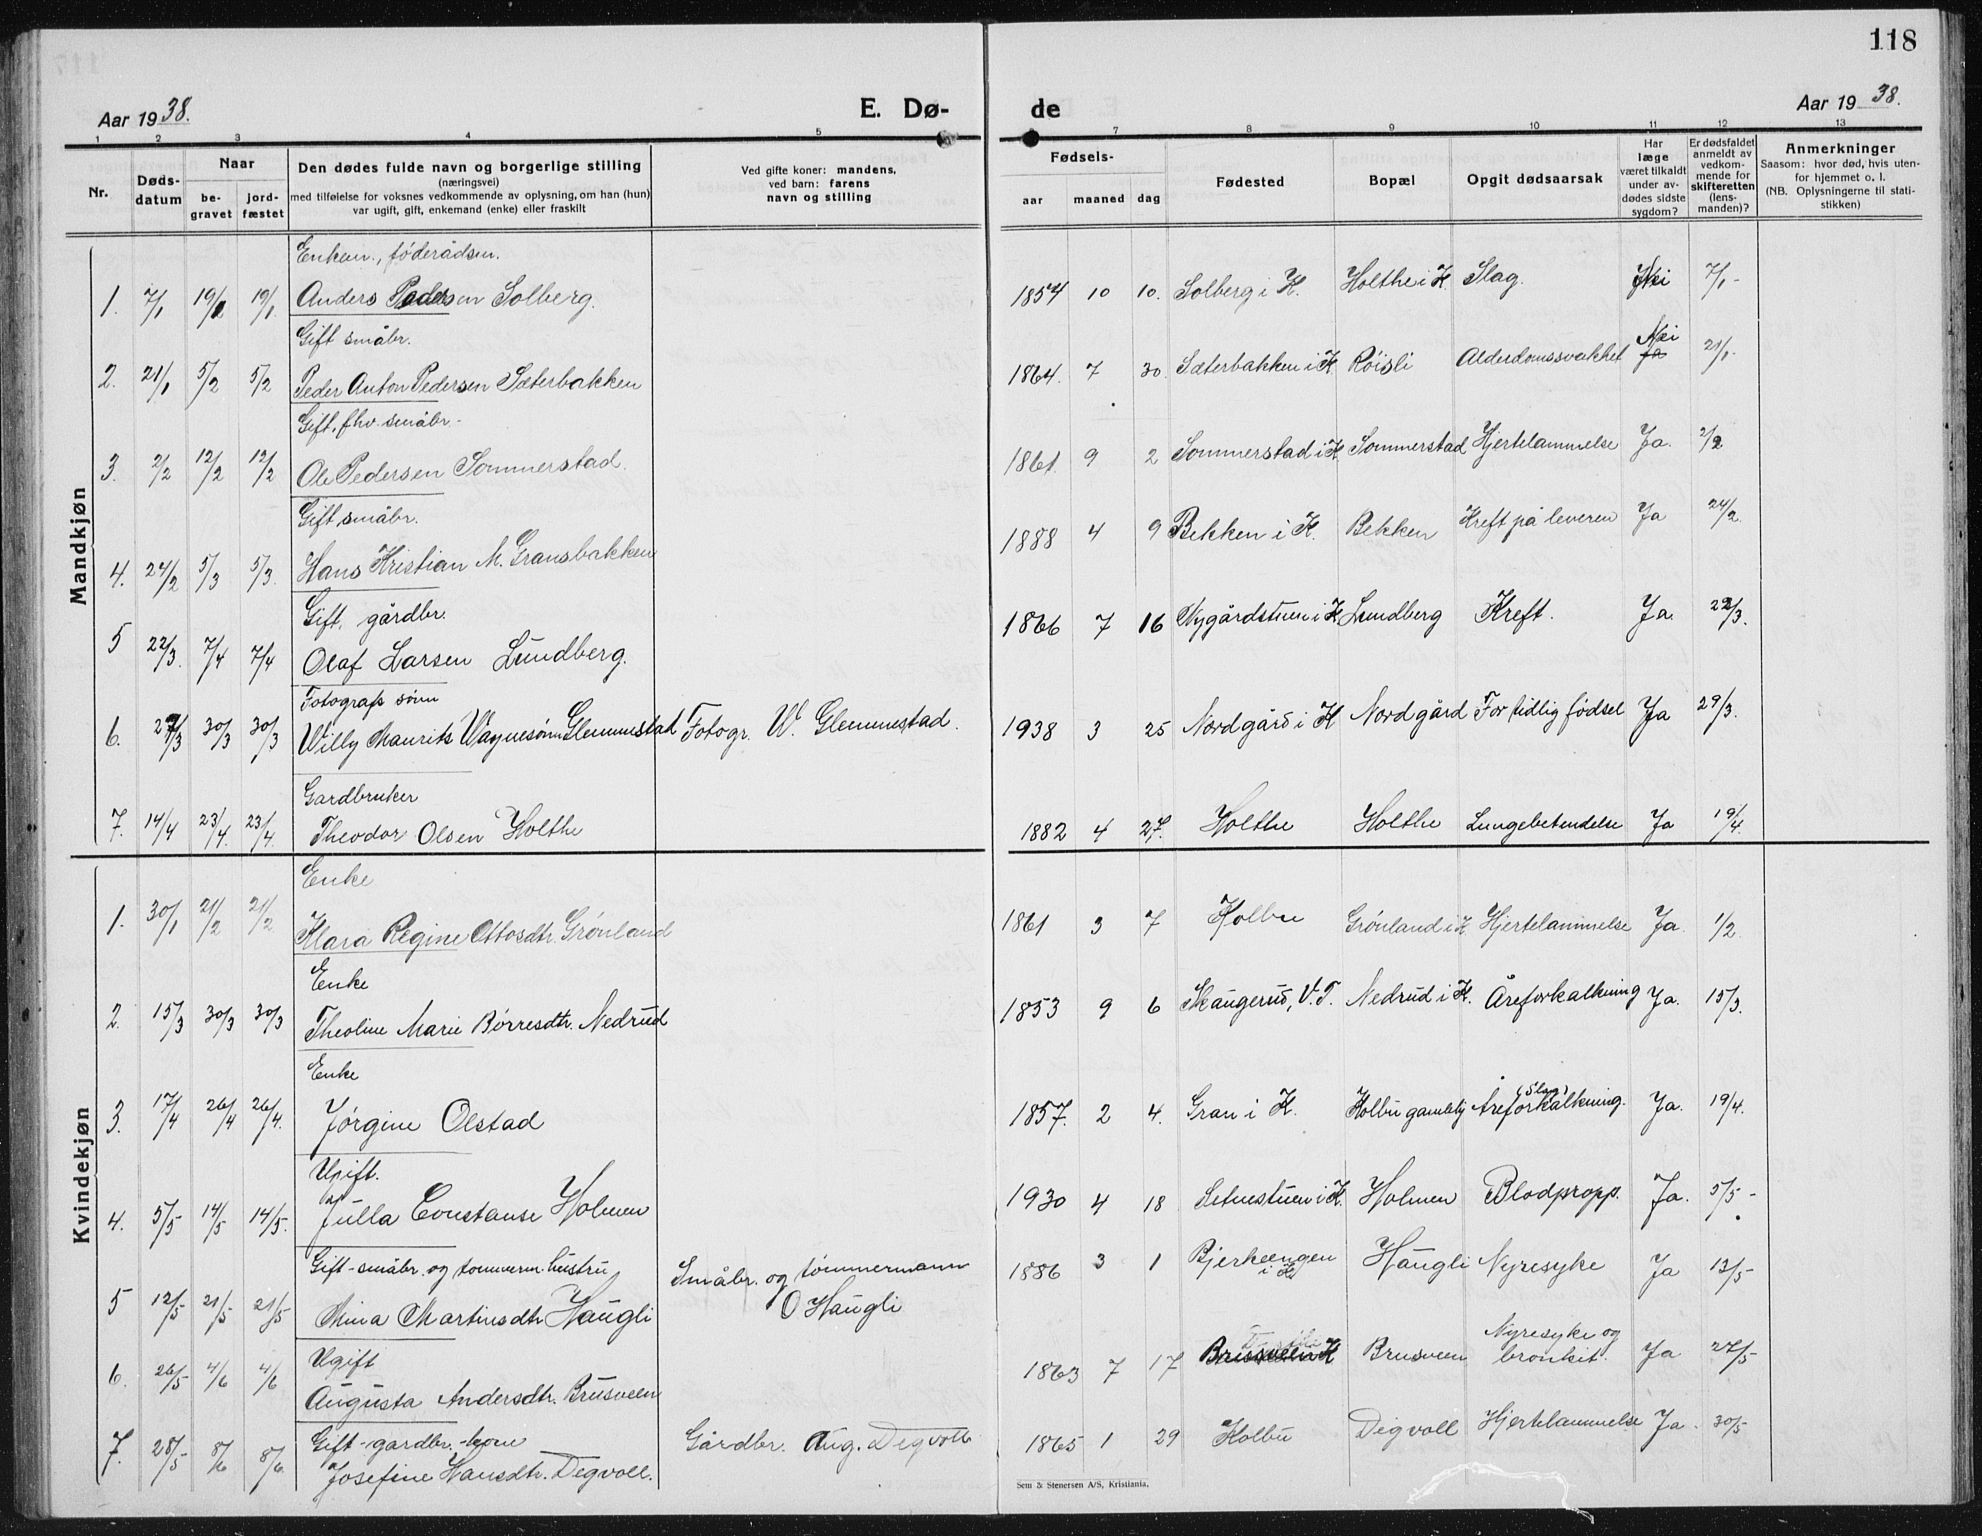 118
Aar 1938.
E. Dø-
de
Aar 1938.
1 2 3 4 5 7 8 9 10 11 12 13
Nr.
Døds-
datum
Naar
be-
gravet
jord-
fæstet
Den dødes fulde navn og borgerlige stilling
(næringsvei)
med tilføielse for voksnes vedkommende av oplysning, om han (hun)
var ugift, gift, enkemand (enke) eller fraskilt
Ved gifte koner: mandens,
ved barn: farens
navn og stilling
Fødsels-
aar maaned dag
Fødested
Bopæl
Opgit dødsaarsak
Har
læge
været tilkaldt
under av-
dødes sidste
sygdom?
Er dødsfaldet
anmeldt av
vedkom-
mende for
skifteretten
(lens-
manden)?
Anmerkninger
Saasom: hvor død, hvis uten-
for hjemmet o. l.
(NB. Oplysningerne til stati-
stikken)
Mandkjøn
Enkem., føderådsm.
1. 7/1 19/1 19/1 Anders Pedersen Solberg. 1854 10 10. Solberg i K. Holthe i K. Slag. Nei 7/1 -
Gift småbr.
2. 21/1 5/2 5/2 Peder Anton Pedersen Sæterbakken 1864. 7 30. Sæterbakken i K. Röisli Alderdomssvakhet Nei ja 21/1-
Gift, fhv. småbr. -
3. 2/2 12/2 12/2 Ole Pedersen Sommerstad. 1861. 9 2 Sommerstad i K. Sommerstad Hjertelammelse Ja. 2/2
Gift, småbr.
4. 24/2 5/3 5/3. Hans Kristian M. Gransbakken 1888 4 9 Bekken i K. Bekken Kreft på leveren Ja 24/2.
Gift, gårdbr.
5 22/3. 7/4 7/4 Olaf Larsen Lundberg. 1866 7 16 Nygårdstuen i K. Lundberg Kreft. Ja. 22/3.
Fotografs sønn
6. 27/3 30/3 30/3 Willy Maurits Waynesønn Glemmestad Fotogr. W. Glemmestad. 1938 3 25 Nordgård i K Nordgård For tidlig fødsel Ja 29/3.
Gardbruker
7. 14/4 23/4. 23/4. Theodor Olsen Holthe 1882 4 27. Holthe Holthe Lungebetendelse Ja 19/4.
Kvindekjøn
Enke
1. 30/1 21/2 21/2 Klara Regine Ottosdtr. Grønland 1861 3 7 Kolbu Grønland i K. Hjertelammelse Ja. 1/2
Enke
2. 15/3 30/3 30/3 Theoline Marie Børresdtr. Nedrud 1853 9 6 Skaugerud, V.T. Nedrud i K. Åreforkalkning Ja. 15/3.
Enke
3. 17/4 26/4 26/4. Jørgine Olstad 1857. 2 4. Gran i K. Kolbu gamlehj Åreforkalkning. (Slag) Ja. 19/4.
Ugift.
4. 5/5 14/5 14/5. Julla Constanse Holmen 1930 4 18 Setnestuen i K. Holmen Blodpropp. Ja. 5/5 -
Gift - småbr. og tømmerm. hustru
5 12/5 21/5 21/5 Mina Martinsdtr Haugli Småbr. og tømmermann
O Haugli 1886 3 1 Bjerkeengen
i K Haugli Nyresyke Ja 13/5
Ugift
6. 26/5 4/6 4/6 Augusta Andersdtr. Brusveen 1863 7 17 Brusveen K Brusveen Nyresyke og
bronkit. Ja 27/5
Gift - gardbr. - kone
7. 28/5 8/6 8/6 Josefine Hansdtr. Degvoll. Gårdbr. Aug. Degvoll 1865 1 29 Kolbu Degvoll Hjertelammelse Ja 30/5
Sem & Stenersen A/S, Kristiania.